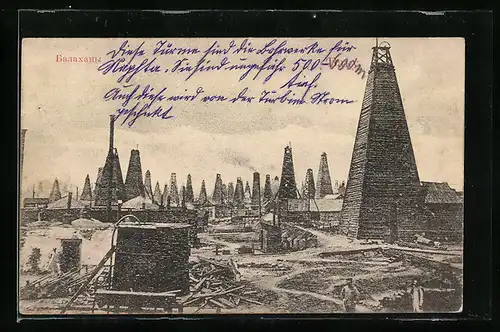 Балаханы
Diese Türme sind die Bohrwerke für
Naphta. Sie sind ungefähr 500-
tief.
Auch diese wird von der Turbine Strom
geschickt